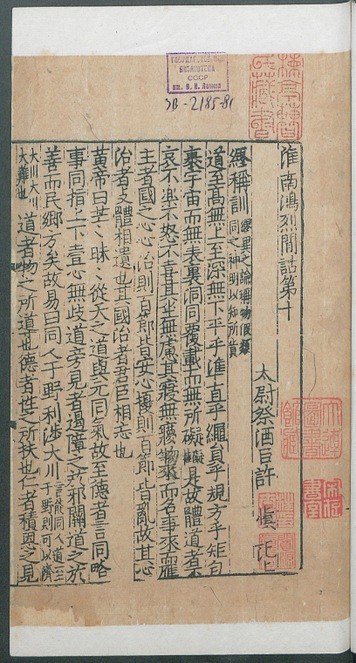 ГОСУДАРСТВЕННАЯ
БИБЛИОТЕКА
СССР
им. В. И. Ленина
3B-2185-81
淮南鴻烈閒詁第十
太尉祭酒臣許慎記上
繆稱訓
道至高無上至深無下平乎准直乎繩員乎規方乎矩包
裹宇宙而無表裏洞同覆載而無所礙是故體道者不
哀不樂不怒不喜其坐無慮其寢無夢物來而名事來而應
主者國之心心治則百節皆安心擾則百節皆亂故其心
治者支體相遺也其國治者君臣相忘也
黃帝曰芒芒昧昧從天之道與元同氣故至德者言同略
事同指上下壹心無歧道旁見者遏障之於邪開道之於
善而民鄉方矣故易曰同人于野利涉大川
道者物之所道也德者性之所扶也仁者積恩之見